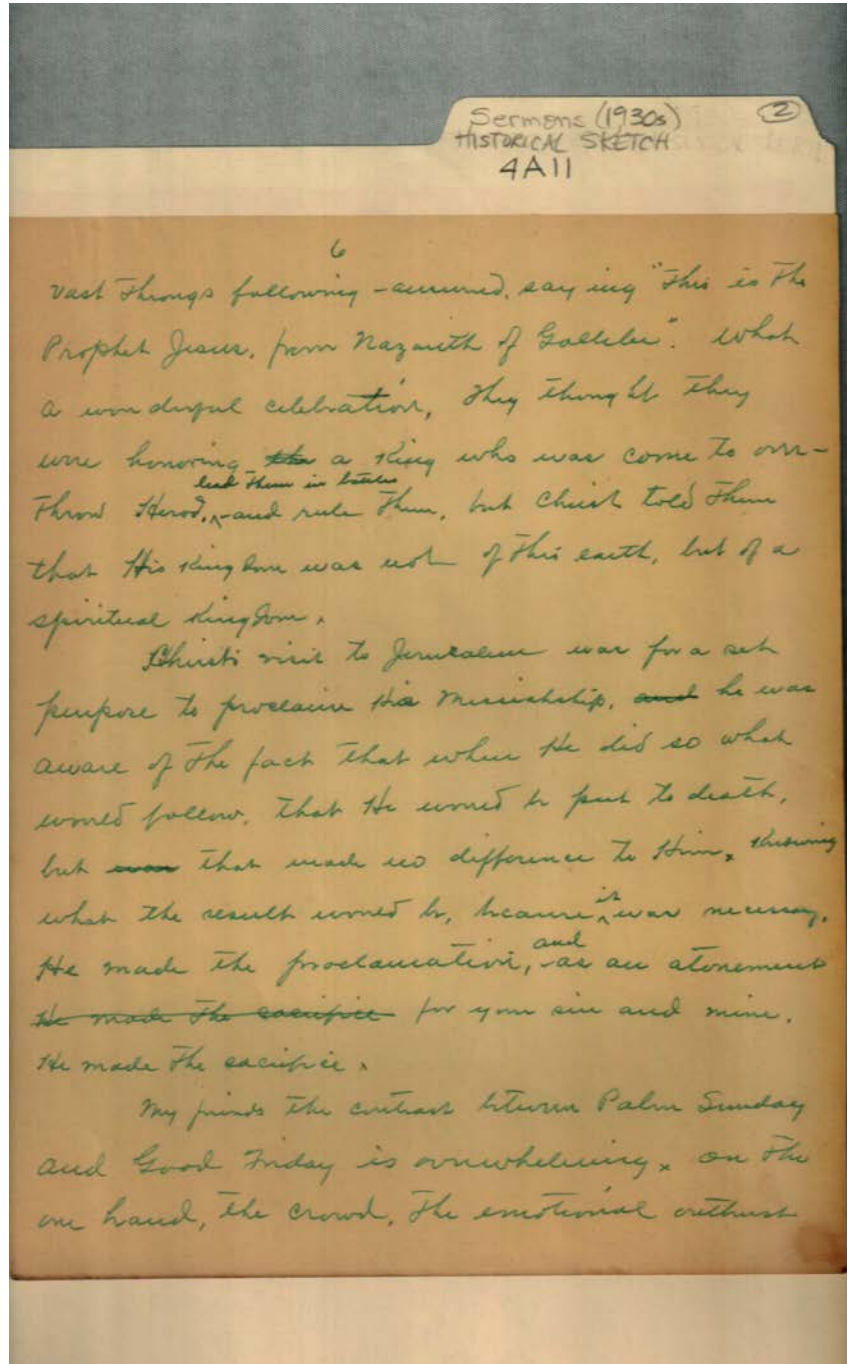 Sermons (1930s) ②
HISTORICAL SKETCH
4A11
6
vast Throngs following - answered, saying "This is The
Prophet Jesus, from Nazareth of Galilee". What
a wonderful celebration, They thought They
were honoring the a King who was come to over-
lead Them in battle
Throw Herod, ^ and rule Them, but Christ told Them
that His Kingdom was not of This earth, but of a
spiritual Kingdom.
Christ's visit to Jerusalem was for a set
purpose to proclaim His Messiahship, and he was
aware of The fact That when He did so what
would follow, that He would be put to death,
but was that made no difference to Him. Knowing
what the result would be, because ^it was necessary.
He made the proclamation, and as an atonement
He made The sacrifice for your sin and mine.
He made The sacrifice.
My friends The contrast between Palm Sunday
and Good Friday is overwhelming. on The
one hand, the crowd, The emotional outburst